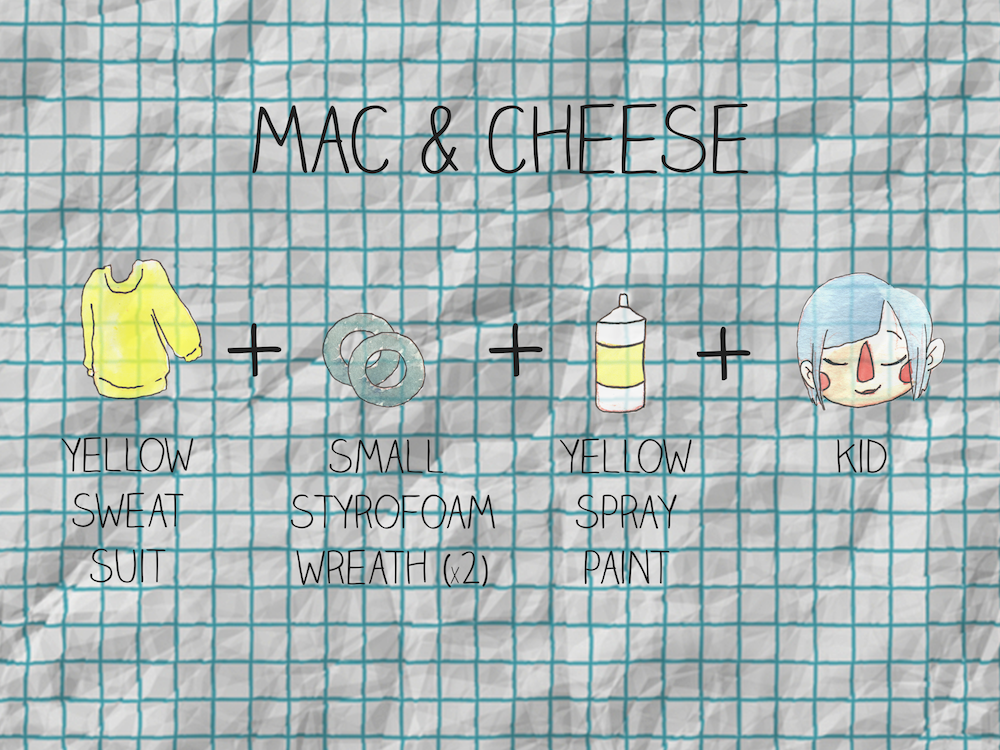 MAC & CHEESE
+ + +
YELLOW
SWEAT
SUIT
SMALL
STYROFOAM
WREATH (x2)
YELLOW
SPRAY
PAINT
KID